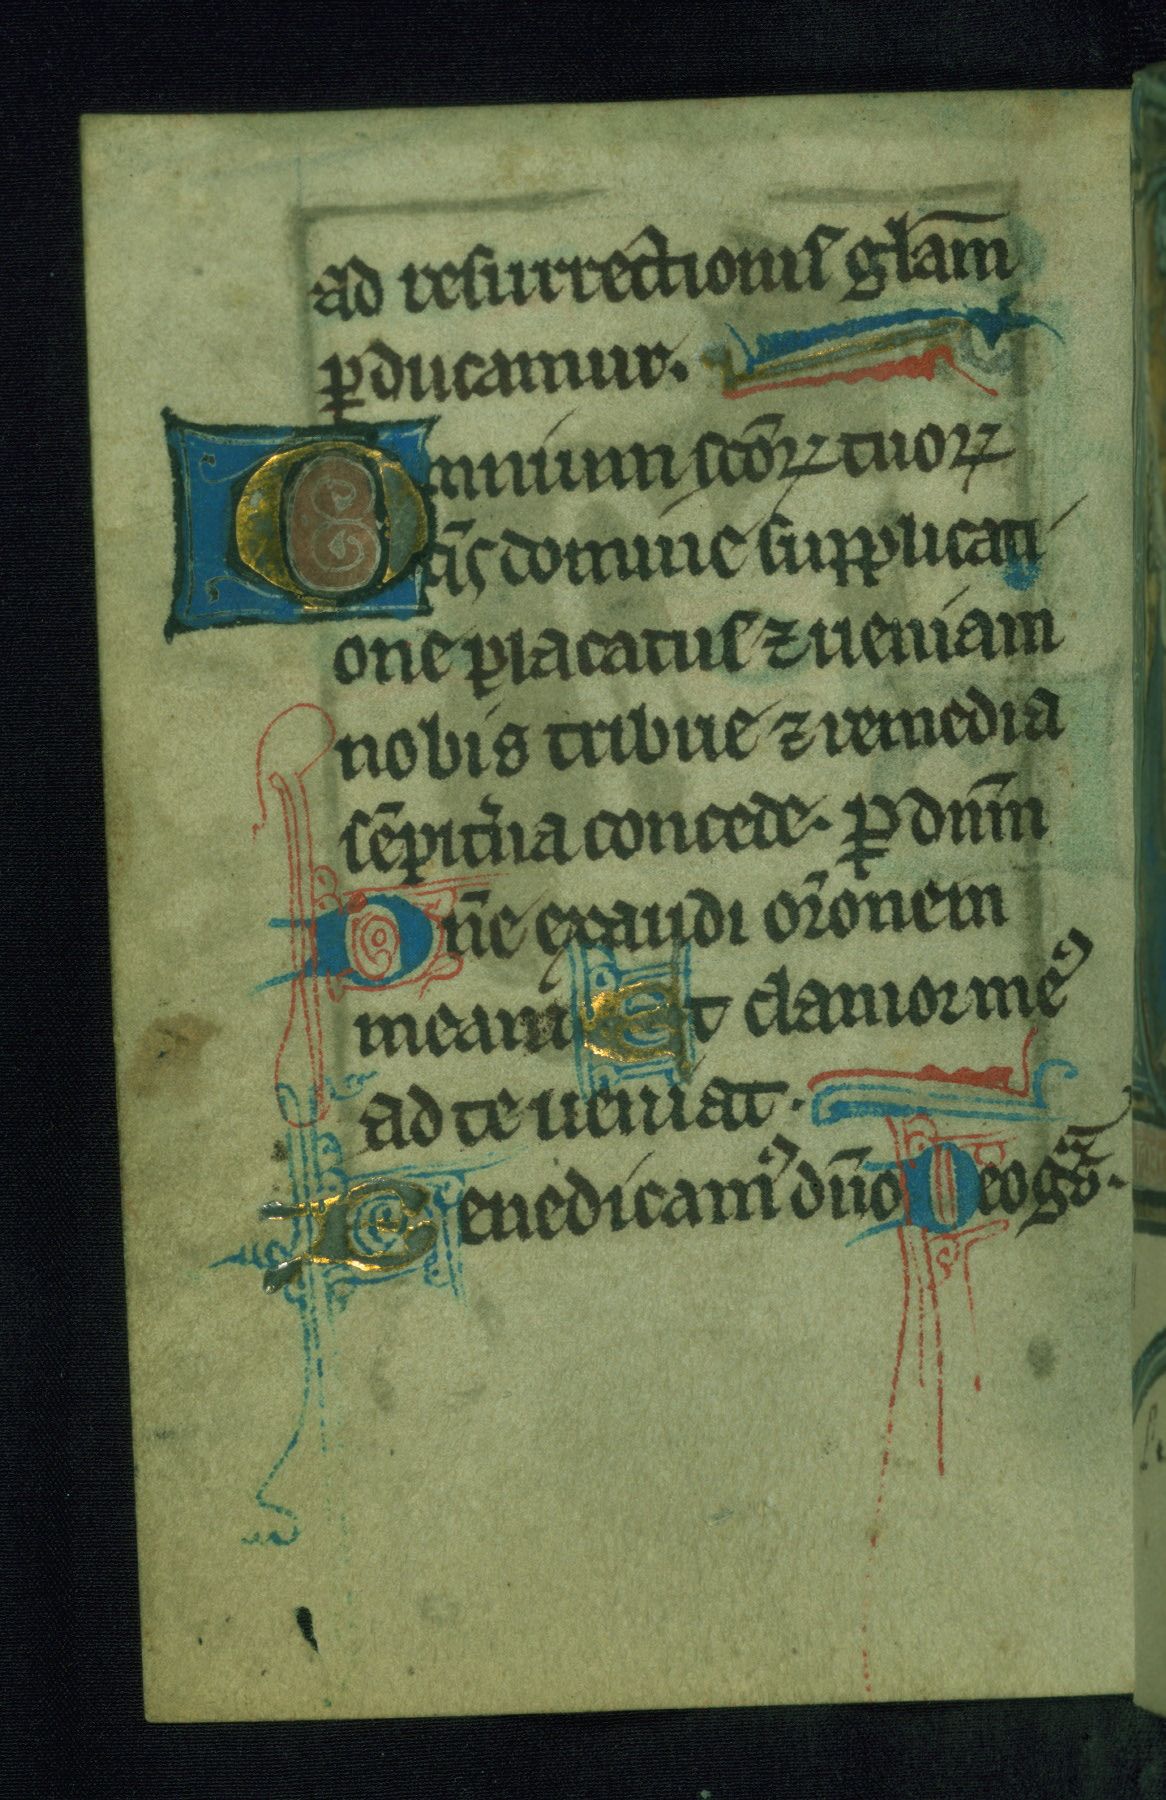 ad resurrectionis gl̄am
ꝑducamur.
Omnium sc̄oꝝ tuoꝝ
q̄s domine supplicati
one placatus ⁊ ueniam
nobis tribue ⁊ remedia
sēpit̾na concede. ꝑ dn̄m
Dn̄e exaudi or̄onem
meam Et clamor meꝰ
ad te ueniat.
Benedicamꝰ dn̄o Deo gr̄s.